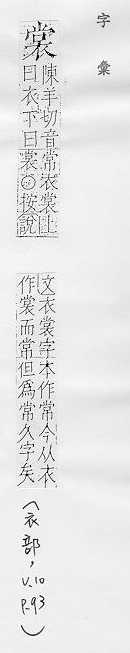 字彙
裳
陳羊切音常衣裳上
曰衣下曰裳○按說
文衣裳字本作常今从衣
作裳而常但為常久字矣
(衣部, V.10 P.93)